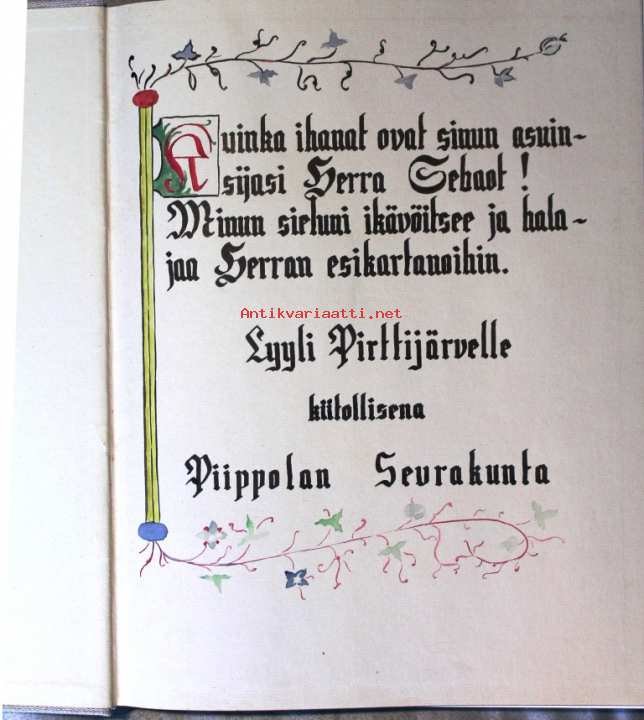 Kuinka ihanat ovat sinun asuin-
sijasi Herra Sebaot!
Minun sieluni ikävöitsee ja hala-
jaa Herran esikartanoihin.
Antikvariaatti.net
Lyyli Pirttijärvelle
kiitollisena
Piippolan Seurakunta